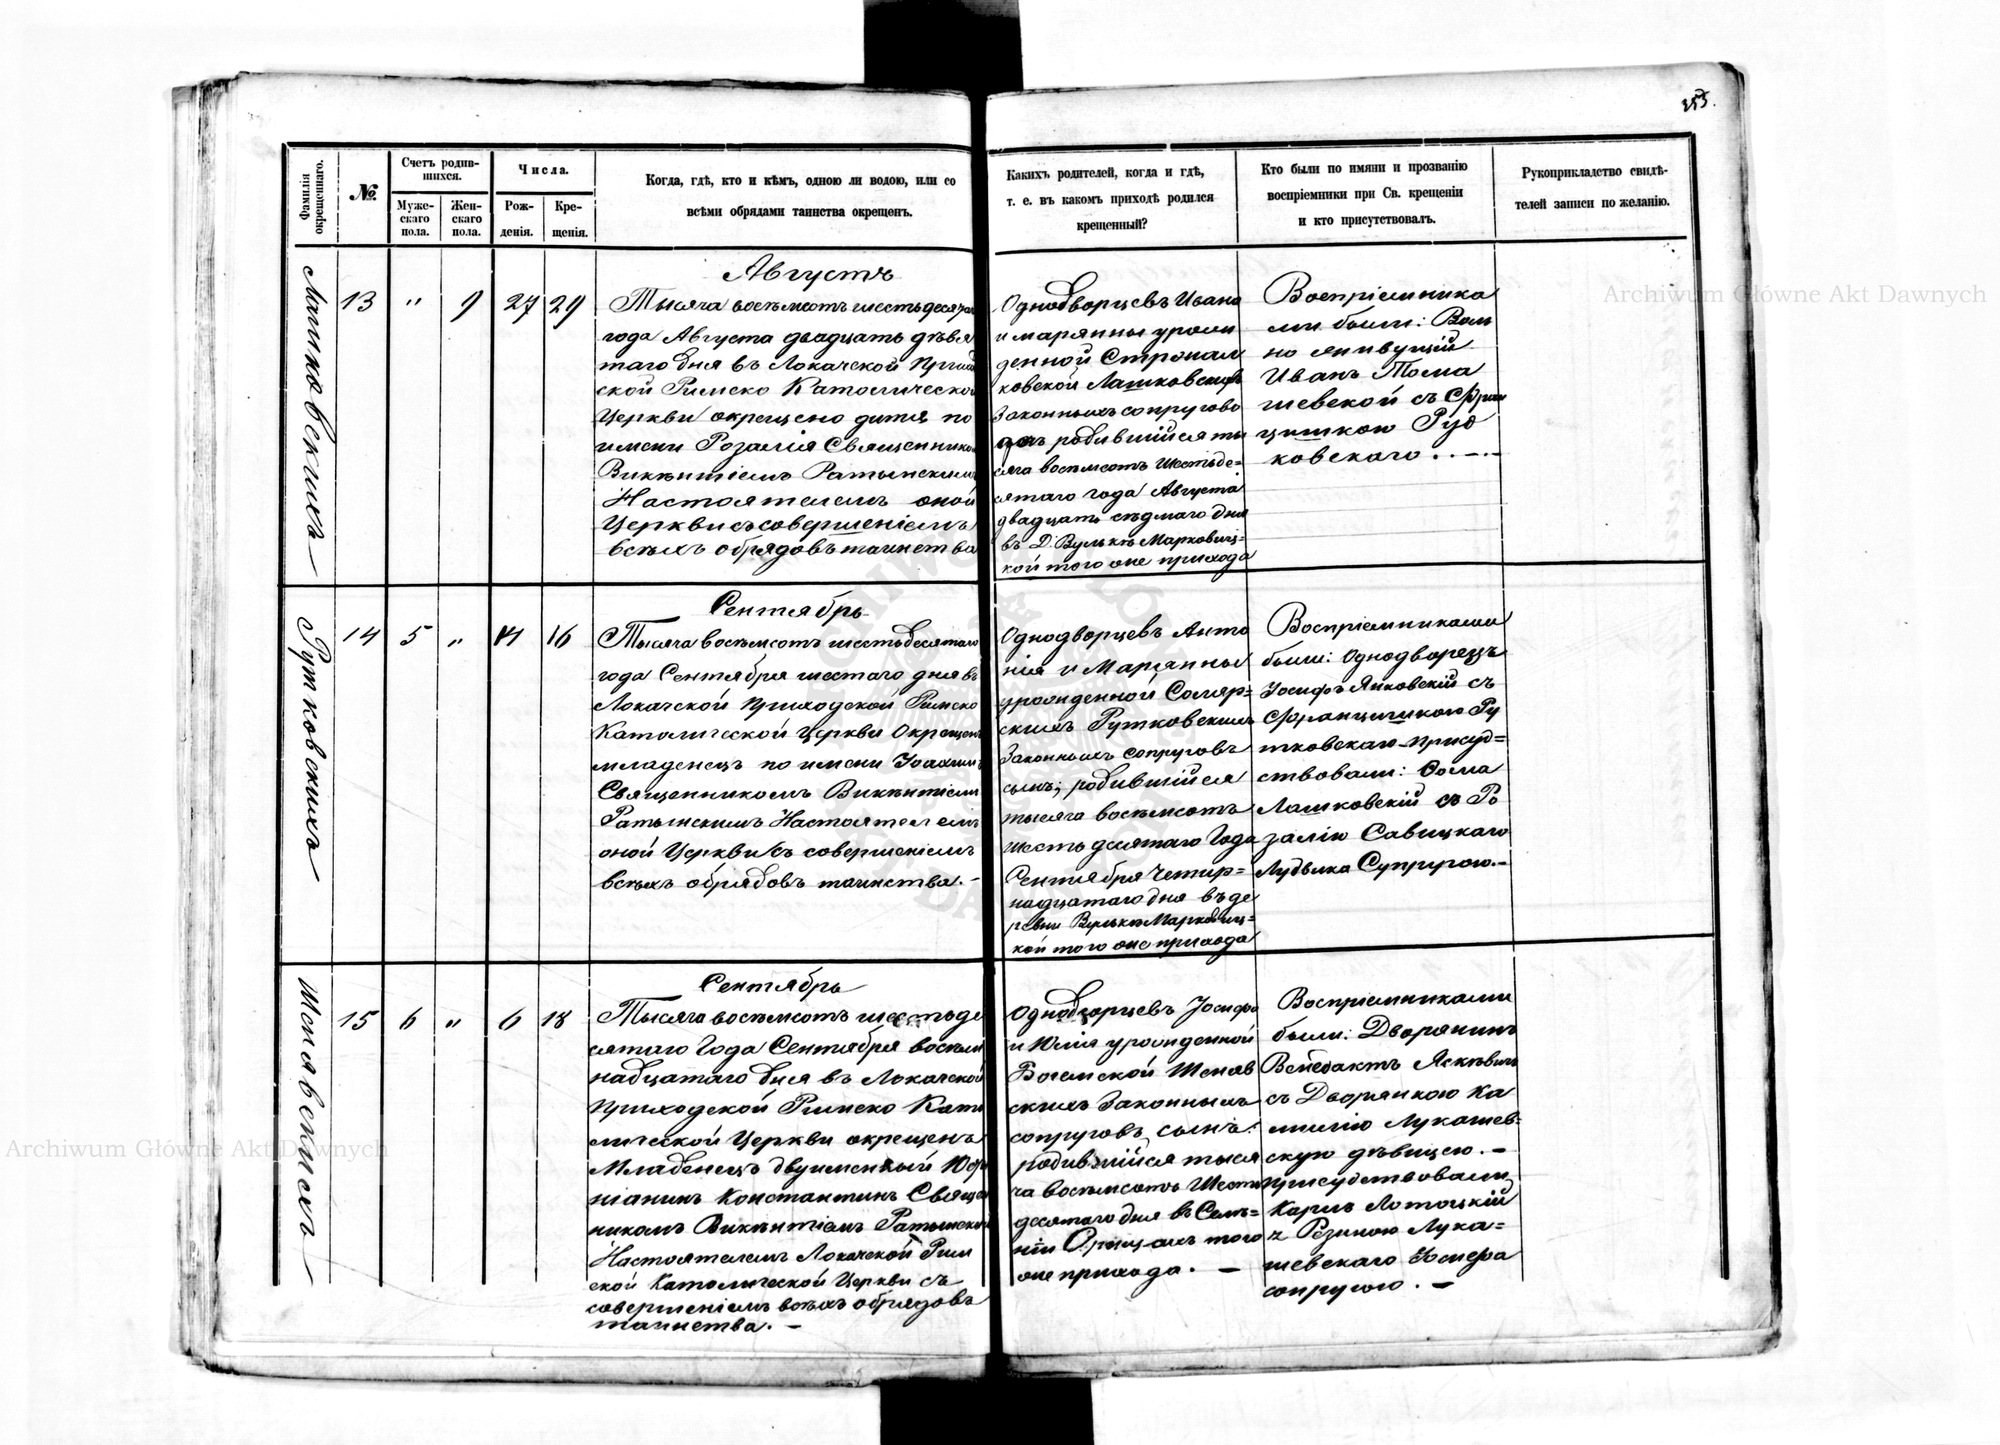 353.
Фамилія окрещеннаго.
№
Счетъ родив-
шихся.
Муже-
скаго
пола.
Жен-
скаго
пола.
Числа.
Рож-
денія.
Кре-
щенія.
Когда, гдѣ, кто и кѣмъ, одною ли водою, или со
всѣми обрядами таинства окрещенъ.
Какихъ родителей, когда и гдѣ,
т. е. въ какомъ приходѣ родился
крещенный?
Кто были по имяни и прозванію
воспріемники при Св. крещеніи
и кто присутствовалъ.
Рукоприкладство свидѣ-
телей записи по желанію.
Лашковскихъ
13 " 9 27 29
Августъ
Тысяча восемьсотъ шестьдесятаго
года Августа двадцать девя
таго дня въ Локачской Приход
ской Римско Католической
Церкви окрещено дитя по
имени Розалія Священникомъ
Викентіемъ Ратынскимъ
Настоятелемъ оной
Церкви съ совершеніемъ
всѣхъ обрядовъ таинства
Однодворцевъ Ивана
и Марянны урож
денной
ковской Лашковскихъ
Законныхъ сопругово
дочь родившійся ты
сяча восемьсотъ Шестьде=
сятаго года Августа
двадцать седмаго дня
въ Д. Вулькѣ Марковиц=
кой того же прихода
Воспріемника
ми были: Воль
но живущій
Иванъ Тома
шевской съ Фран
цишкою Руд
ковскаго . . — .
Рутковскихъ
14 5 " 14 16
Сентябрь
Тысяча восемьсотъ шестьдесятаго
года Сентября шестаго дня въ
Локачской Приходской Римско
Католической Церкви Окрещенъ
младенецъ по имени Іоахимъ
Священникомъ Викентіемъ
Ратынскимъ Настоятелемъ
оной Церкви съ совершеніемъ
всѣхъ обрядовъ таинства. -
Однодворцевъ Анто
нія и Маріянны
урожденной Соляр=
скихъ Рутковскихъ
Законныхъ сопруговъ
сынъ; родившійся
тысяча восемьсотъ
Шестьдесятаго Года
Сентября Четыр=
надцатаго дня въ де
ревни Вулькѣ Марковиц=
кой того же прихода
Воспріемниками
были: Однодворецъ
Іосифъ Янковскій съ
Францишкою Ру
тковскаго Присуд=
ствовали: Фома
Лашковскій съ Ро
залію Савицкаго
Лудвика Супругою.-
Шенавскихъ
15 6 " 6 18
Сентябрь
Тысяча восемьсотъ шестьде
сятаго Года Сентября восемь
надцатаго дня въ Локачской
Приходской Римско Като
лической Церкви окрещенъ
Младенецъ двуименный
Константинъ Священ
никомъ Викентіемъ Ратынским
Настоятелемъ Локачской Рим
ской Католической Церкви съ
совершеніемъ всѣхъ обрядовъ
таинства. —
Однодворцевъ Іосифа
и Юліи урожденной
Шенав
скихъ Законныхъ
сопруговъ сынъ:
родившійся тыся
ча восемьсотъ Шесть
десятаго дня въ Селѣ=
ніи того
же прихода. —
Воспріемниками
были: Дворянинъ
Венедактъ Яскевич
съ Дворянкою Ка
милію Лукашев=
скую дѣвицею. —
Присудствовали
Карлъ Лотоцкій
Лука=
шевскаго Іосифа
сопругою. —
Archiwum Główne Akt Dawnych
Archiwum Główne Akt Dawnych